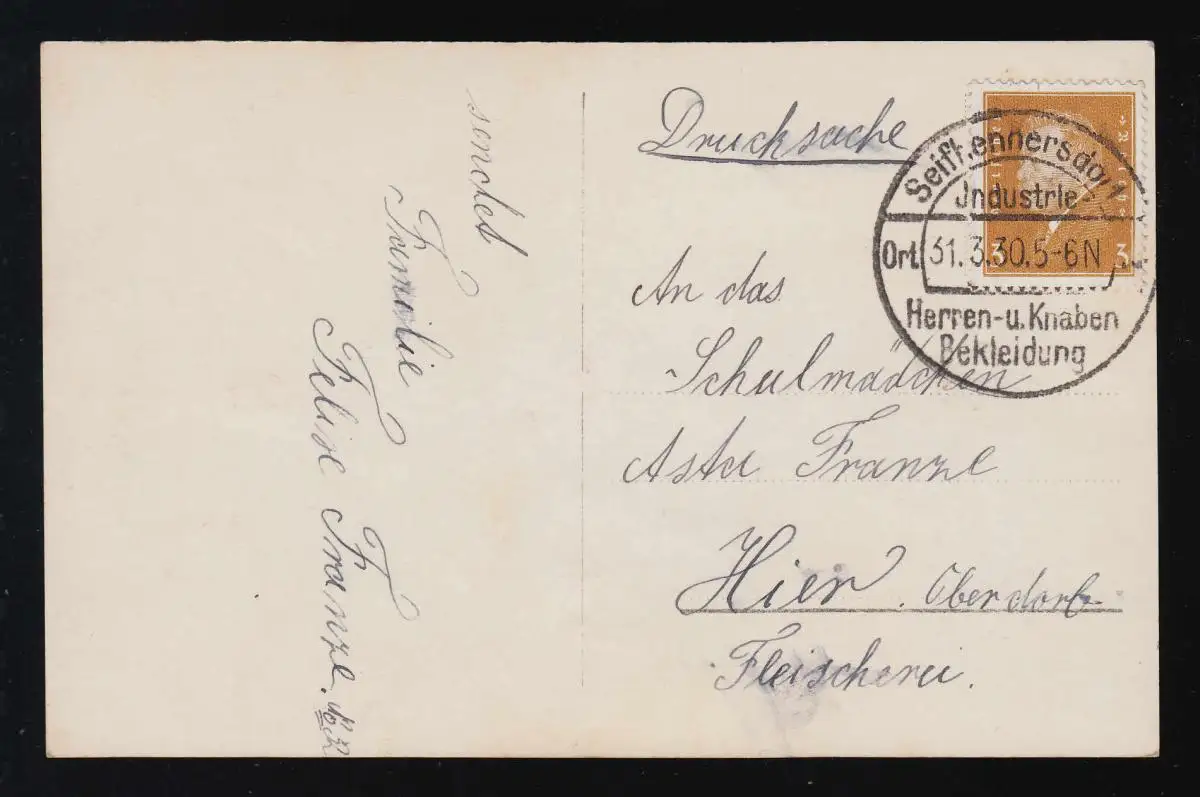 sendet
Familie
Felix Franze.
Drucksache
Seifhennersdorf
Jndustrie
Ort 31.3.30.5-6N
Herren-u. Knaben
Bekleidung
3 3
An das
Schulmädchen
Asta Franze
Hier. Oberdorf
Fleischerei.